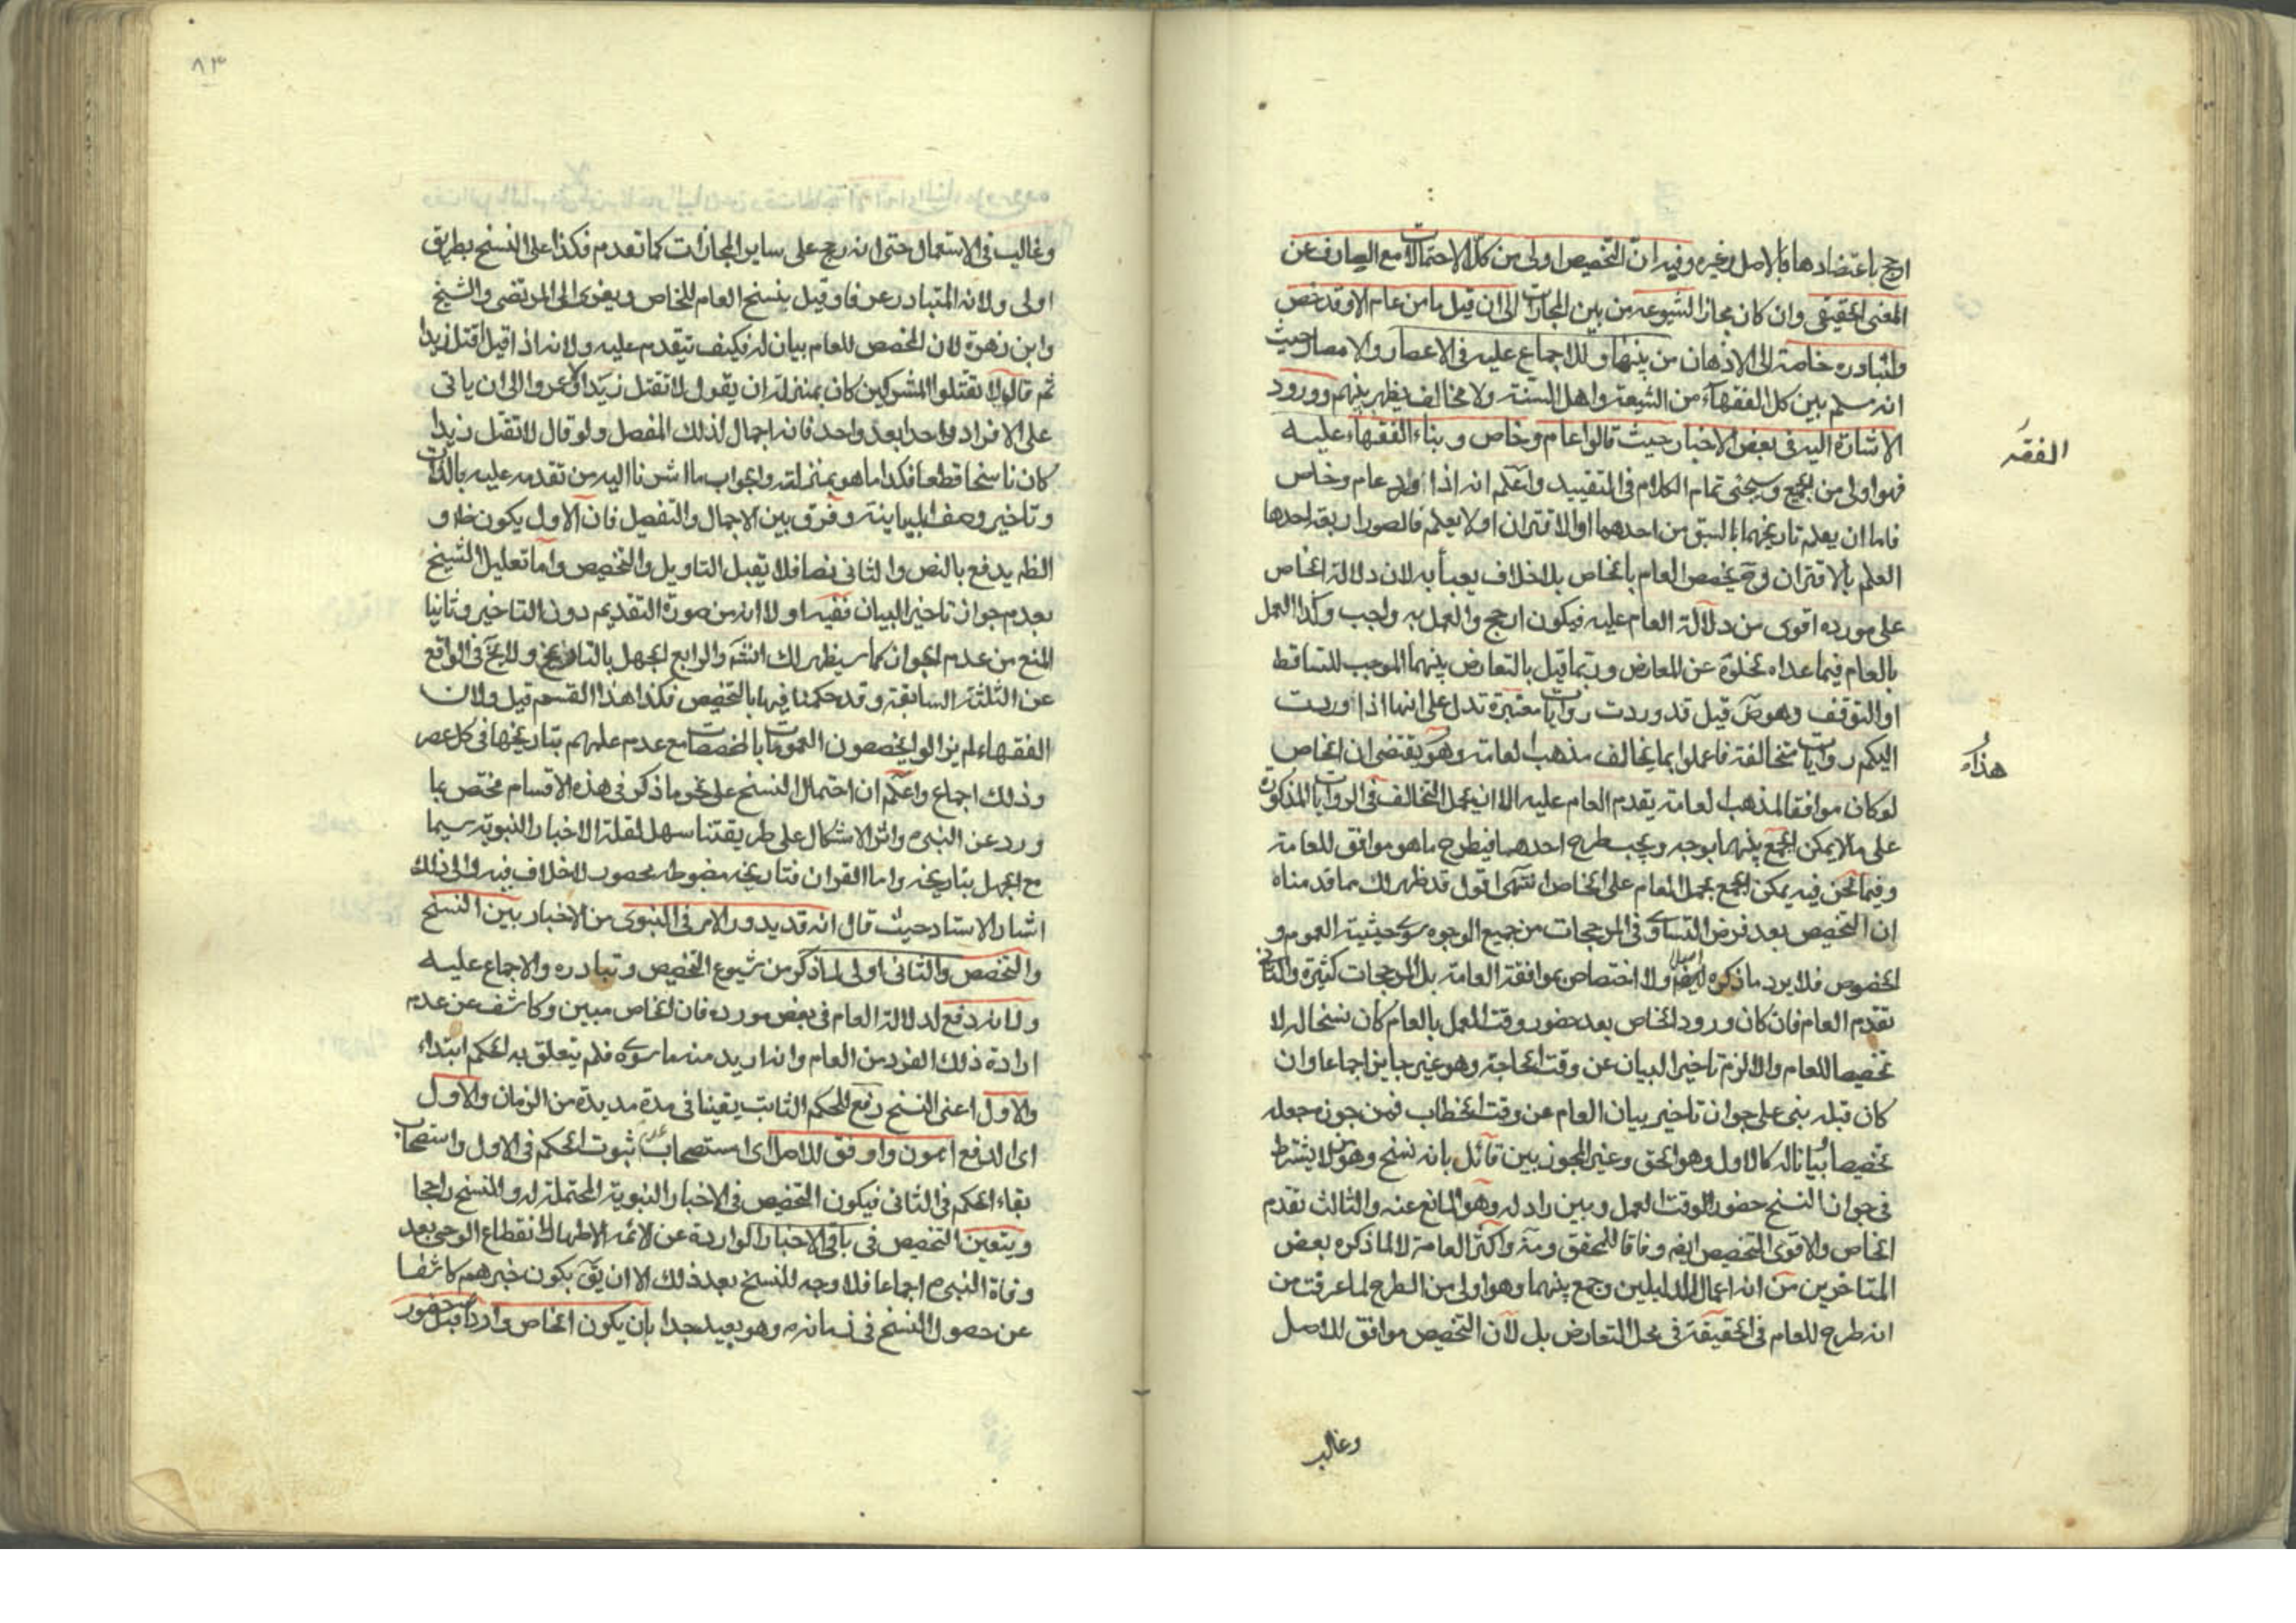 ارجح باعتضادها بالاصل وغيره وفيه ان التخصيص اولى من كل الاحتمالات مع الصارف عن
المعنى الحقيقي وان كان مجازا لشيوعه من بين المجازات الى ان قيل ما من عام الا وقد خص
وتبادره خاصة الى الاذهان من بينها وللاجماع عليه في الاعصار والامصار حيث
انه مسلم بين كل الفقهاء من الشيعة واهل السنة ولا مخالف يظهر بينهم وورود
الاشارة اليه في بعض الاخبار حيث قالوا عام وخاص وبناء الفقهاء عليه
الفقه
فهو اولى من الجميع وسيجئ تمام الكلام في التقييد واعلم انه اذا ورد عام وخاص
فاما ان يعلم تاريخهما بالسبق من احدهما او الاقتران او لا يعلم فالصور اربعة احدها
العلم بالاقتران وح يخصص العام بالخاص بلا خلاف يعبأ به لان دلالة الخاص
على مورده اقوى من دلالة العام عليه فيكون ارجح والعمل به واجب وكذا العمل
بالعام فيما عداه لخلوه عن المعارض وربما قيل بالتعارض بينهما الموجب للتساقط
او التوقف وهو ض قيل قد وردت روايات معتبرة تدل على انها اذا وردت
اليكم روايات متخالفة فاعملوا بما يخالف مذهب العامة وهو يقتضى ان الخاص
هذاه
لو كان موافقا لمذهب العامة يقدم العام عليه الا ان يحمل التخالف في الروايات المذكورة
على ما لا يمكن الجمع بينهما بوجه ويجب طرح احدهما فيطرح ما هو موافق للعامة
وفيما نحن فيه يمكن الجمع بحمل العام على الخاص انتهى اقول قد ظهر لك مما قدمناه
ان التخصيص بعد فرض التساوي في المرجحات من جميع الوجوه سوى حيثية العموم و
الخصوص فلا يرد ما ذكره اصلا ايضا ولا اختصاص بموافقة العامة بل المرجحات كثيرة والثاني
تقدم العام فان كان ورود الخاص بعد حضور وقت العمل بالعام كان نسخا له لا
تخصيصا للعام والا لزم تاخير البيان عن وقت الحاجة وهو غير جايز اجماعا وان
كان قبله بنى على جواز تاخير بيان العام عن وقت الخطاب فمن جوزه جعله
تخصيصا بيانا له كالاول وهو الحق وغير المجوز بين قائل بانه نسخ وهو من لا يشترط
في جواز النسخ حضور الوقت العمل وبين راد له وهو المانع عنه والثالث تقدم
الخاص والاقوى التخصيص ايضم وفاقا للمحقق ومة واكثر العامة لا لما ذكره بعض
المتاخرين من انه اعمال للدليلين وجمع بينهما وهو اولى من الطرح لما عرفت من
انه طرح للعام في الحقيقة في محل التعارض بل لان التخصيص موافق للاصل
وغالب
٨٣
وغالب في الاستعمال حتى انه رجح على ساير المجازات كما تقدم فكذا على النسخ بطريق
اولى ولانه المتبادر عرفا وقيل ينسخ العام للخاص ويعزى الى المرتضى والشيخ
وابن زهرة لان المخصص للعام بيان له فكيف يتقدم عليه ولانه اذا قيل اقتل زيدا
ثم قال لا تقتلوا المشركين كان بمنزلة ان يقول لا تقتل زيدا ولا عمروا الى ان ياتى
على الافراد واحدا بعد واحد فانه اجمال لذلك المفصل ولو قال لا تقتل زيدا
كان ناسخا قطعا فكذا ما هو بمنزلته والجواب ما اشرنا اليه من تقدمه عليه بالذات
وتاخير وصف البيانية وفرق بين الاجمال والتفصيل فان الاول يكون خلاف
الظم يدفع بالنص والثاني نصا فلا يقبل التاويل والتخصيص واما تعليل الشيخ
بعدم جواز تاخير البيان ففيه اولا انه من صورة التقديم دون التاخير وثانيا
المنع من عدم الجواز كما سيظهر لك انشه والرابع الجهل بالتاريخ ولا يخ في الواقع
عن الثلثة السابقة وقد حكمنا فيها بالتخصيص فكذا هذا القسم قيل ولان
الفقهاء لم يزالوا يخصصون العمومات بالمخصصات مع عدم علمهم بتاريخها في كل عصر
وذلك اجماع واعلم ان احتمال النسخ على نحو ما ذكر في هذه الاقسام مختص بما
ورد عن النبي ص واثر الاشكال على طريقتنا سهل لقلة الاخبار النبوية سيما
مع الجهل بتاريخه واما القران فتاريخه مضبوط محصور لا خلاف فيه والى ذلك
اشار الاستاد حيث قال انه قد يدور الامر في النبوى من الاخبار بين النسخ
والتخصص والثاني اولى لما ذكر من شيوع التخصيص وتبادره والاجماع عليه
ولانه دفع لدلالة العام في بعض مورده فان الخاص مبين وكاشف عن عدم
ارادة ذلك الفرد من العام وانه اريد منه ما سواه فلم يتعلق به الحكم ابتداء
والاول اعنى النسخ رفع للحكم الثابت يقينا في مدة مديدة من الزمان والاول
اى الدفع اهون واوفق للاصل اى استصحاب عدم ثبوت الحكم في الاول واستصحاب
بقاء الحكم في الثاني فيكون التخصيص في الاخبار النبوية المحتملة له وللنسخ راجحا
ويتعين التخصيص في باقى الاخبار الواردة عن الائمة الاطهار لانقطاع الوحى بعد
وفاة النبي ص اجماعا فلا وجه للنسخ بعد ذلك الا ان يق بكون خبرهم كاشفا
عن حصول النسخ في زمانه ص وهو بعيد جدا بان يكون الخاص واردا قبل حضور